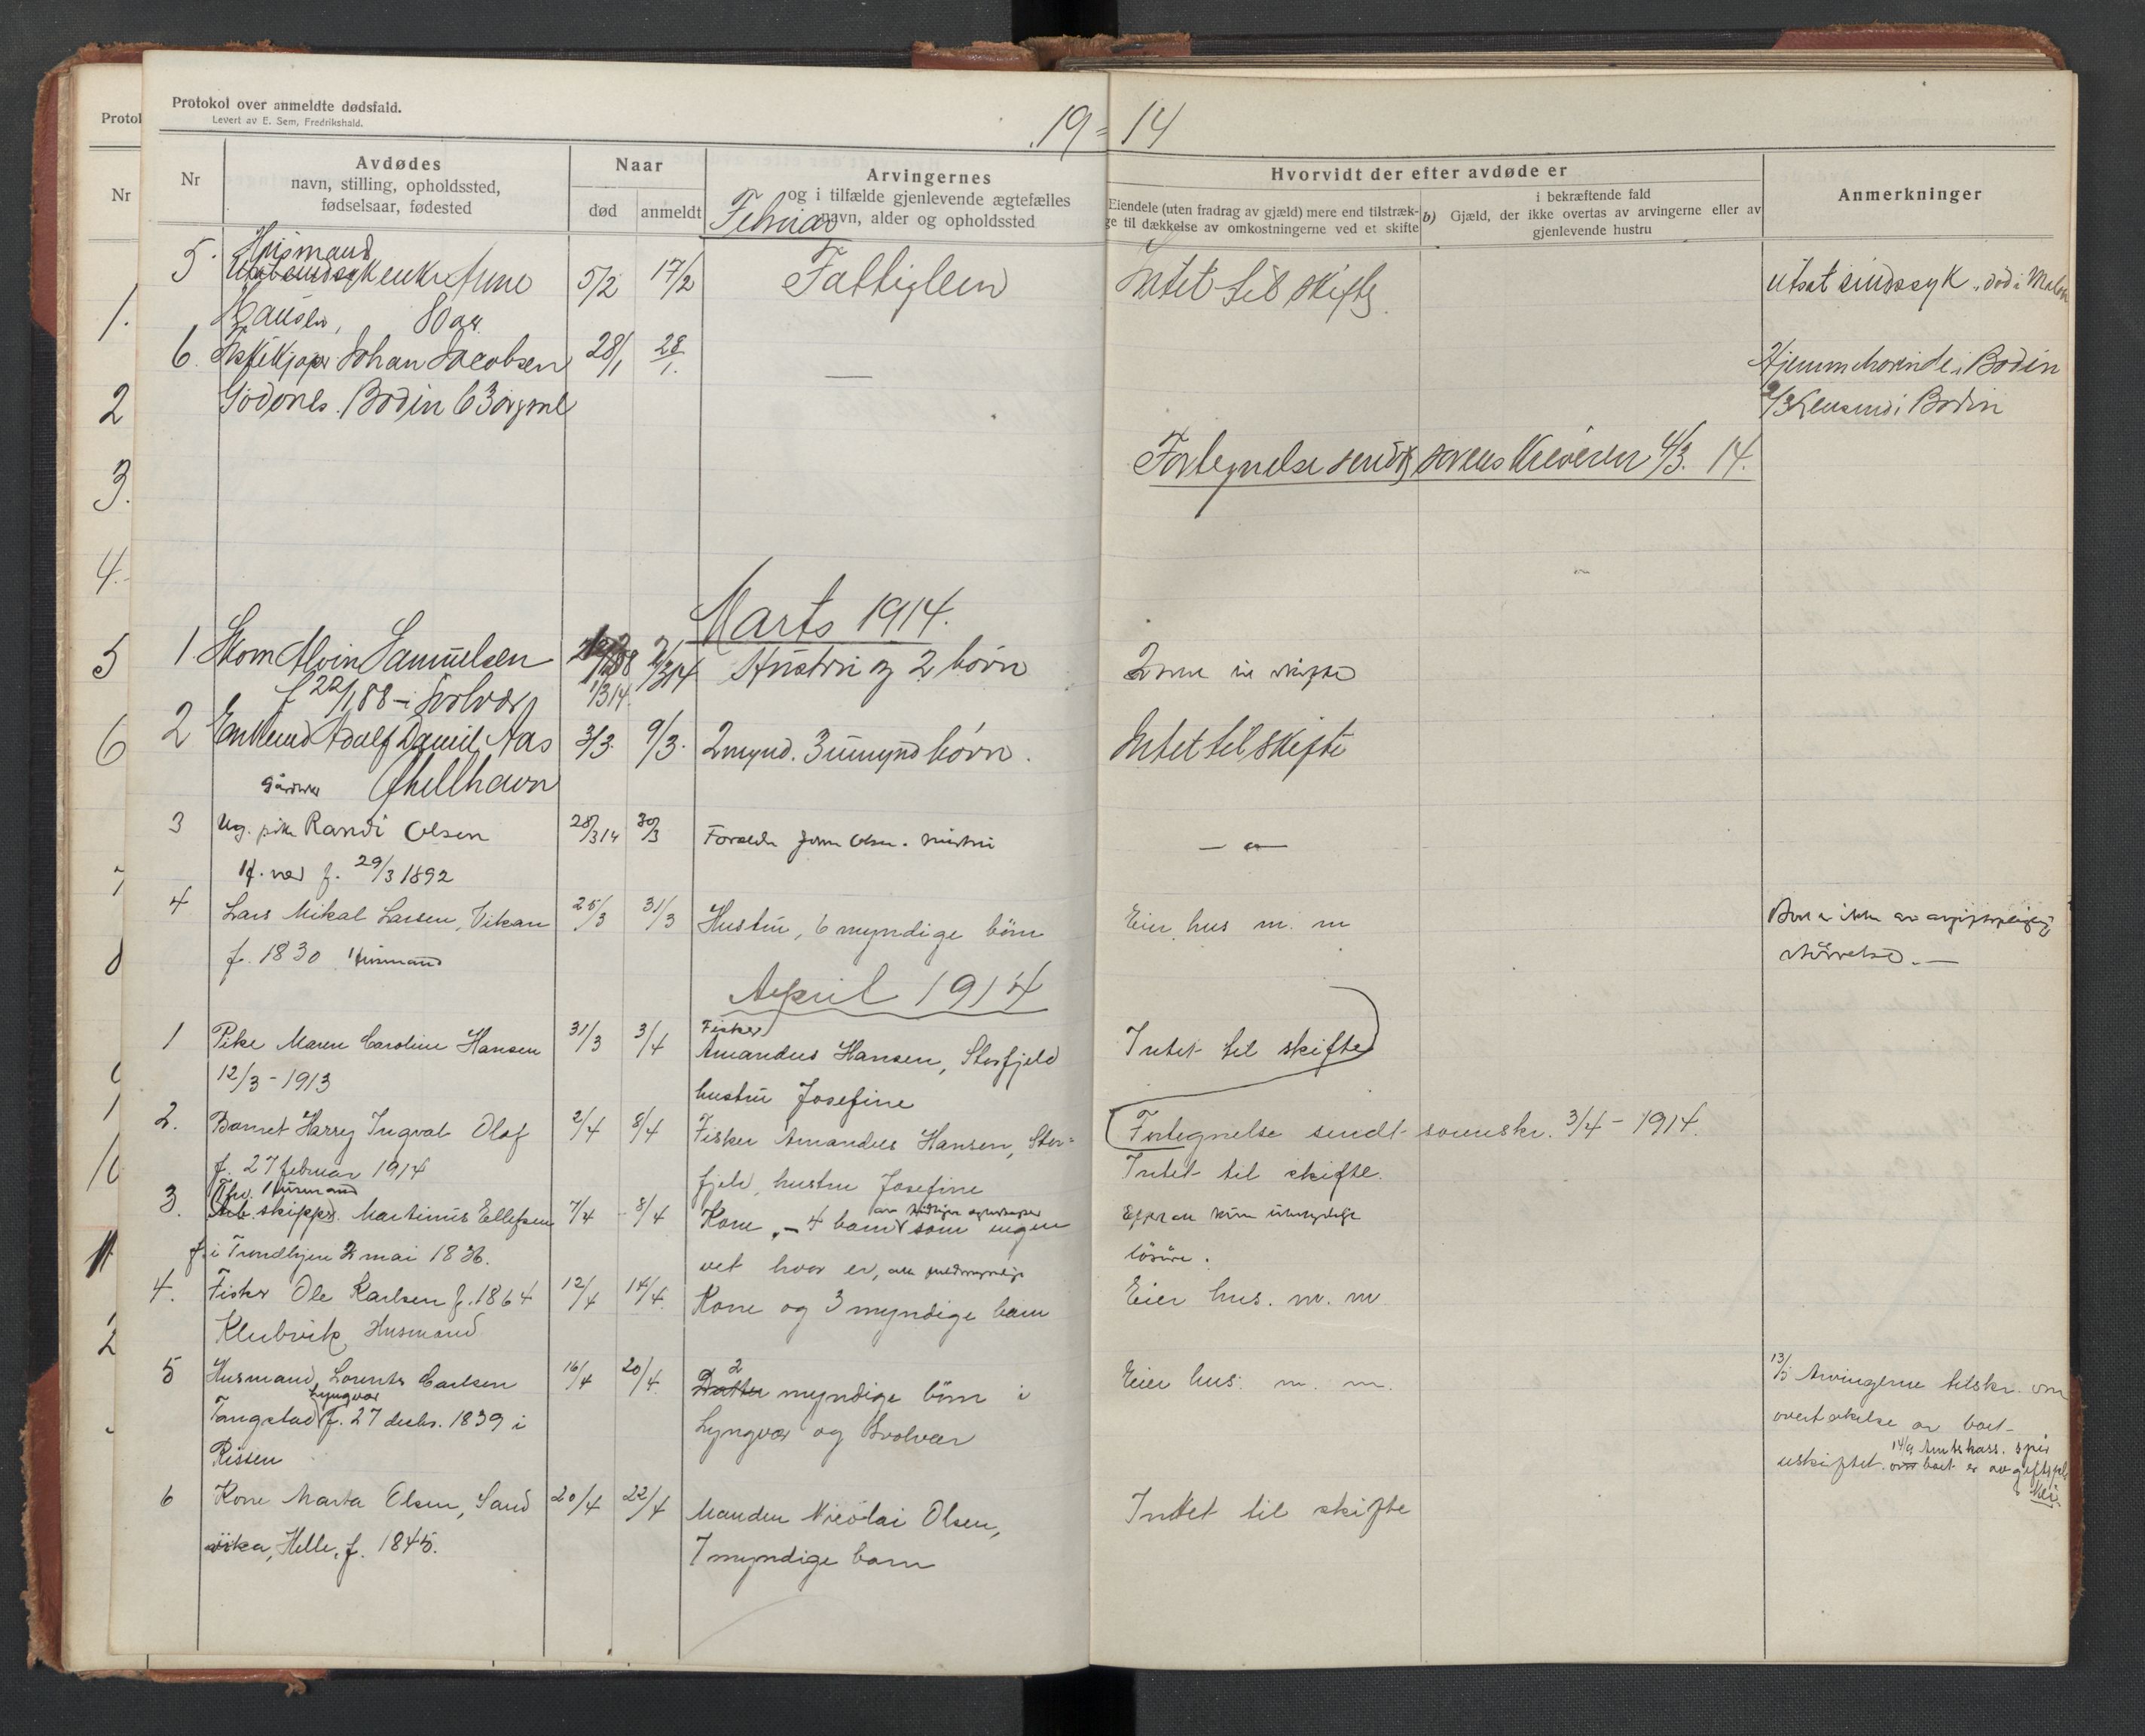 Protokol over anmeldte dødsfald.
Levert av E. Sem, Fredrikshald.
19 = 14
Protokol
Nr
Nr
Avdødes
navn, stilling, opholdssted,
fødselsaar, fødested
Naar
død
anmeldt
Arvingernes
og i tilfælde gjenlevende ægtefælles
navn, alder og opholdssted
Februar
Hvorvidt der efter avdøde er
Eiendele (uten fradrag av gjæld) mere end tilstræk-
ge til dækkelse av omkostningerne ved et skifte
i bekræftende fald
b) Gjæld, der ikke overtas av arvingerne eller av
gjenlevende hustru
Anmerkninger
5. Husmand
enke Anne 5/2 17/2 Fattiglem Intet til skifte utsat sindssyk, död i
Hansen, 80 aar
6. Fiskekjöper Johan Jacobsen 28/1 28/1 — Hjemmehörende i Bodin
Godönes. Bodin 63 aar gml
i Bodin
Fortegnelse sendt sorenskriveren 4/3. 14.
Marts 1914.
1. Skom Alvin Samuelsen 2/3 14 Hustru og 2 börn
f 22/1 88 - i Svolvær 1/3 14.
2 Enkemd Adolf Daniel Aas 3/3. 9/3. 2 mynd. 3 umynd börn. Intet til skifte
3 Ug. pike Randi Olsen 28/3 14 30/3 Forældre Olsen hustru — " —
f. 29/3 1892
4 Lars Mikal Larsen, Vikan 25/3 31/3 Hustru, 6 myndige börn Eier hus m. m
f. 1830 Husmand
April 1914
1 Pike Maren Caroline Hansen 31/3 3/4 Fisker Amandus Hansen, Storfjeld Intet til skifte
12/3 - 1913 hustru Josefine
2. Barnet Harry Ingval Olaf 2/4 8/4 Fisker Amandus Hansen, Stor= Fortegnelse sendt sorenskr. 3/4 - 1914.
f. 27 februar 1914 fjeld, hustru Josefine Intet til skifte.
3. Fhv. Husmand
skipper. Martinus Ellefsen 7/4 - 8/4 Kone, - 4 barn som ingen
f. i Trondhjem 2 mai 1836. vet hvor er, alle
lösöre.
4. Fisker Ole Karlsen f. 1864 12/4 14/4. Kone og 3 myndige barn Eier hus. m. m
Klubvik, Husmand
5 Husmand, Lorents Carlsen 16/4 20/4. 2 myndige börn i Eier hus. m. m. 13/5 Arvingerne tilskr. om
Tangstad Lyngvær f. 27 decbr. 1839 i Lyngvær og Svolvær overtakelse av boet
Rissen uskiftet. 14/9 Amtskass. spör om boet er avgiftspl.
Nei.
6 Kone Marta Olsen, Sand 20/4 22/4 Manden Nicolai Olsen, Intet til skifte
vika, Helle, f. 1845. 7 myndige barn
1.
2
3.
4.
5
6
7
8
9
10
11